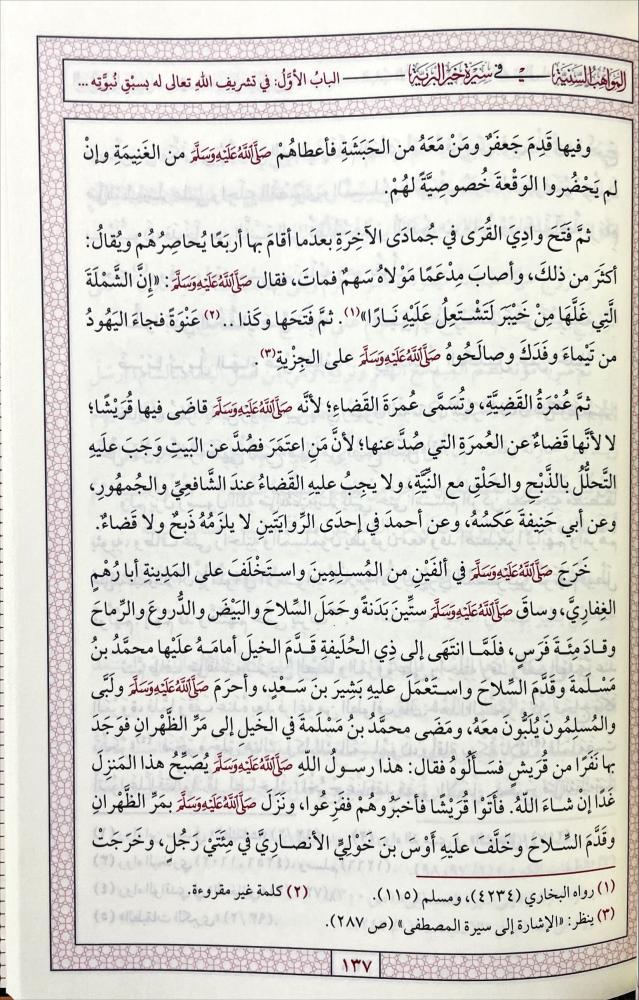 المواهب السنية في سيرة خير البرية الباب الأوَّلُ: في تشريفِ اللهِ تعالى له بسبْقِ نُبوَّتِه ...
وفيها قَدِمَ جَعفَرٌ ومَنْ مَعَهُ من الحَبَشَةِ فأعطاهُمْ صَلَّى اللَّهُ عَلَيْهِ وَسَلَّمَ من الغَنِيمَةِ وإنْ
لم يَحْضُروا الوَقْعةَ خُصوصِيَّةً لهُمْ.
ثمَّ فَتَحَ وادِيَ القُرَى في جُمادَى الآخِرَةِ بعدَما أقامَ بها أربَعًا يُحاصِرُهُم ويُقالُ:
أكثَرَ من ذلكَ، وأصابَ مِدْعَمًا مَوْلاهُ سَهمٌ فماتَ، فقال صَلَّى اللَّهُ عَلَيْهِ وَسَلَّمَ: «إنَّ الشَّمْلَةَ
الَّتِي غَلَّهَا مِنْ خَيْبَرَ لَتَشْتَعِلُ عَلَيْهِ نَارًا»(١). ثمَّ فَتَحَها وكَذا..(٢) عَنْوَةً فجاءَ اليَهُودُ
من تَيْماءَ وفَدَكَ وصالَحُوهُ صَلَّى اللَّهُ عَلَيْهِ وَسَلَّمَ على الجِزْيةِ(٣).
ثمَّ عُمْرَةُ القَضِيَّةِ، وتُسَمَّى عُمرَةَ القَضاءِ؛ لأنَّه صَلَّى اللَّهُ عَلَيْهِ وَسَلَّمَ قاضَى فيها قُرَيْشًا؛
لا لأنَّها قَضاءٌ عن العُمرَةِ التي صُدَّ عنها؛ لأنَّ مَنِ اعتَمَرَ فصُدَّ عن البَيتِ وَجَبَ عَلَيهِ
التَّحلُّلُ بالذَّبْحِ والحَلْقِ مع النِّيَّةِ، ولا يجِبُ عليهِ القَضاءُ عندَ الشَّافعِيِّ والجُمهُورِ،
وعن أبي حَنِيفةَ عَكسُهُ، وعن أحمدَ في إحدَى الرِّوايَتَينِ لا يلزَمُهُ ذَبحٌ ولا قَضاءٌ.
خَرَجَ صَلَّى اللَّهُ عَلَيْهِ وَسَلَّمَ في ألفَيْنِ من المُسلِمِينَ واستَخْلَفَ على المَدِينةِ أبا رُهْمٍ
الغِفارِيَّ، وساقَ صَلَّى اللَّهُ عَلَيْهِ وَسَلَّمَ ستِّينَ بَدَنةً وحَمَلَ السِّلاحَ والبَيْضَ والدُّروعَ والرِّماحَ
وقادَ مِئَةَ فَرَسٍ، فلَمَّا انتَهَى إلى ذِي الحُلَيفةِ قدَّمَ الخيلَ أمامَهُ علَيْها محمَّدُ بنُ
مَسْلَمةَ وقَدَّمَ السِّلاحَ واستَعْمَلَ عليهِ بَشِيرَ بنَ سَعْدٍ، وأحرَمَ صَلَّى اللَّهُ عَلَيْهِ وَسَلَّمَ ولَبَّى
والمُسلِمُونَ يُلَبُّونَ معَهُ، ومَضَى محمَّدُ بنُ مَسْلَمةَ في الخَيلِ إلى مَرِّ الظَّهْرانِ فوَجَدَ
بها نَفَرًا من قرَيشٍ فسَألُوهُ فقال: هذا رسولُ اللَّهِ صَلَّى اللَّهُ عَلَيْهِ وَسَلَّمَ يُصَبِّحُ هذا المَنزِلَ
غَدًا إنْ شاءَ اللَّهُ. فأتَوْا قُرَيْشًا فأخبَرُوهُمْ ففَزِعُوا، ونَزَلَ صَلَّى اللَّهُ عَلَيْهِ وَسَلَّمَ بمَرِّ الظَّهْرانِ
وقدَّمَ السِّلاحَ وخَلَّفَ علَيهِ أوْسَ بنَ خَوْلِيٍّ الأنصارِيَّ في مِئَتَيْ رَجُلٍ، وخَرَجَتْ
(١) رواه البخاري (٤٢٣٤)، ومسلم (١١٥). (٢) كلمة غير مقروءة.
(٣) ينظر: «الإشارة إلى سيرة المصطفى» (ص ٢٨٧).
١٣٧